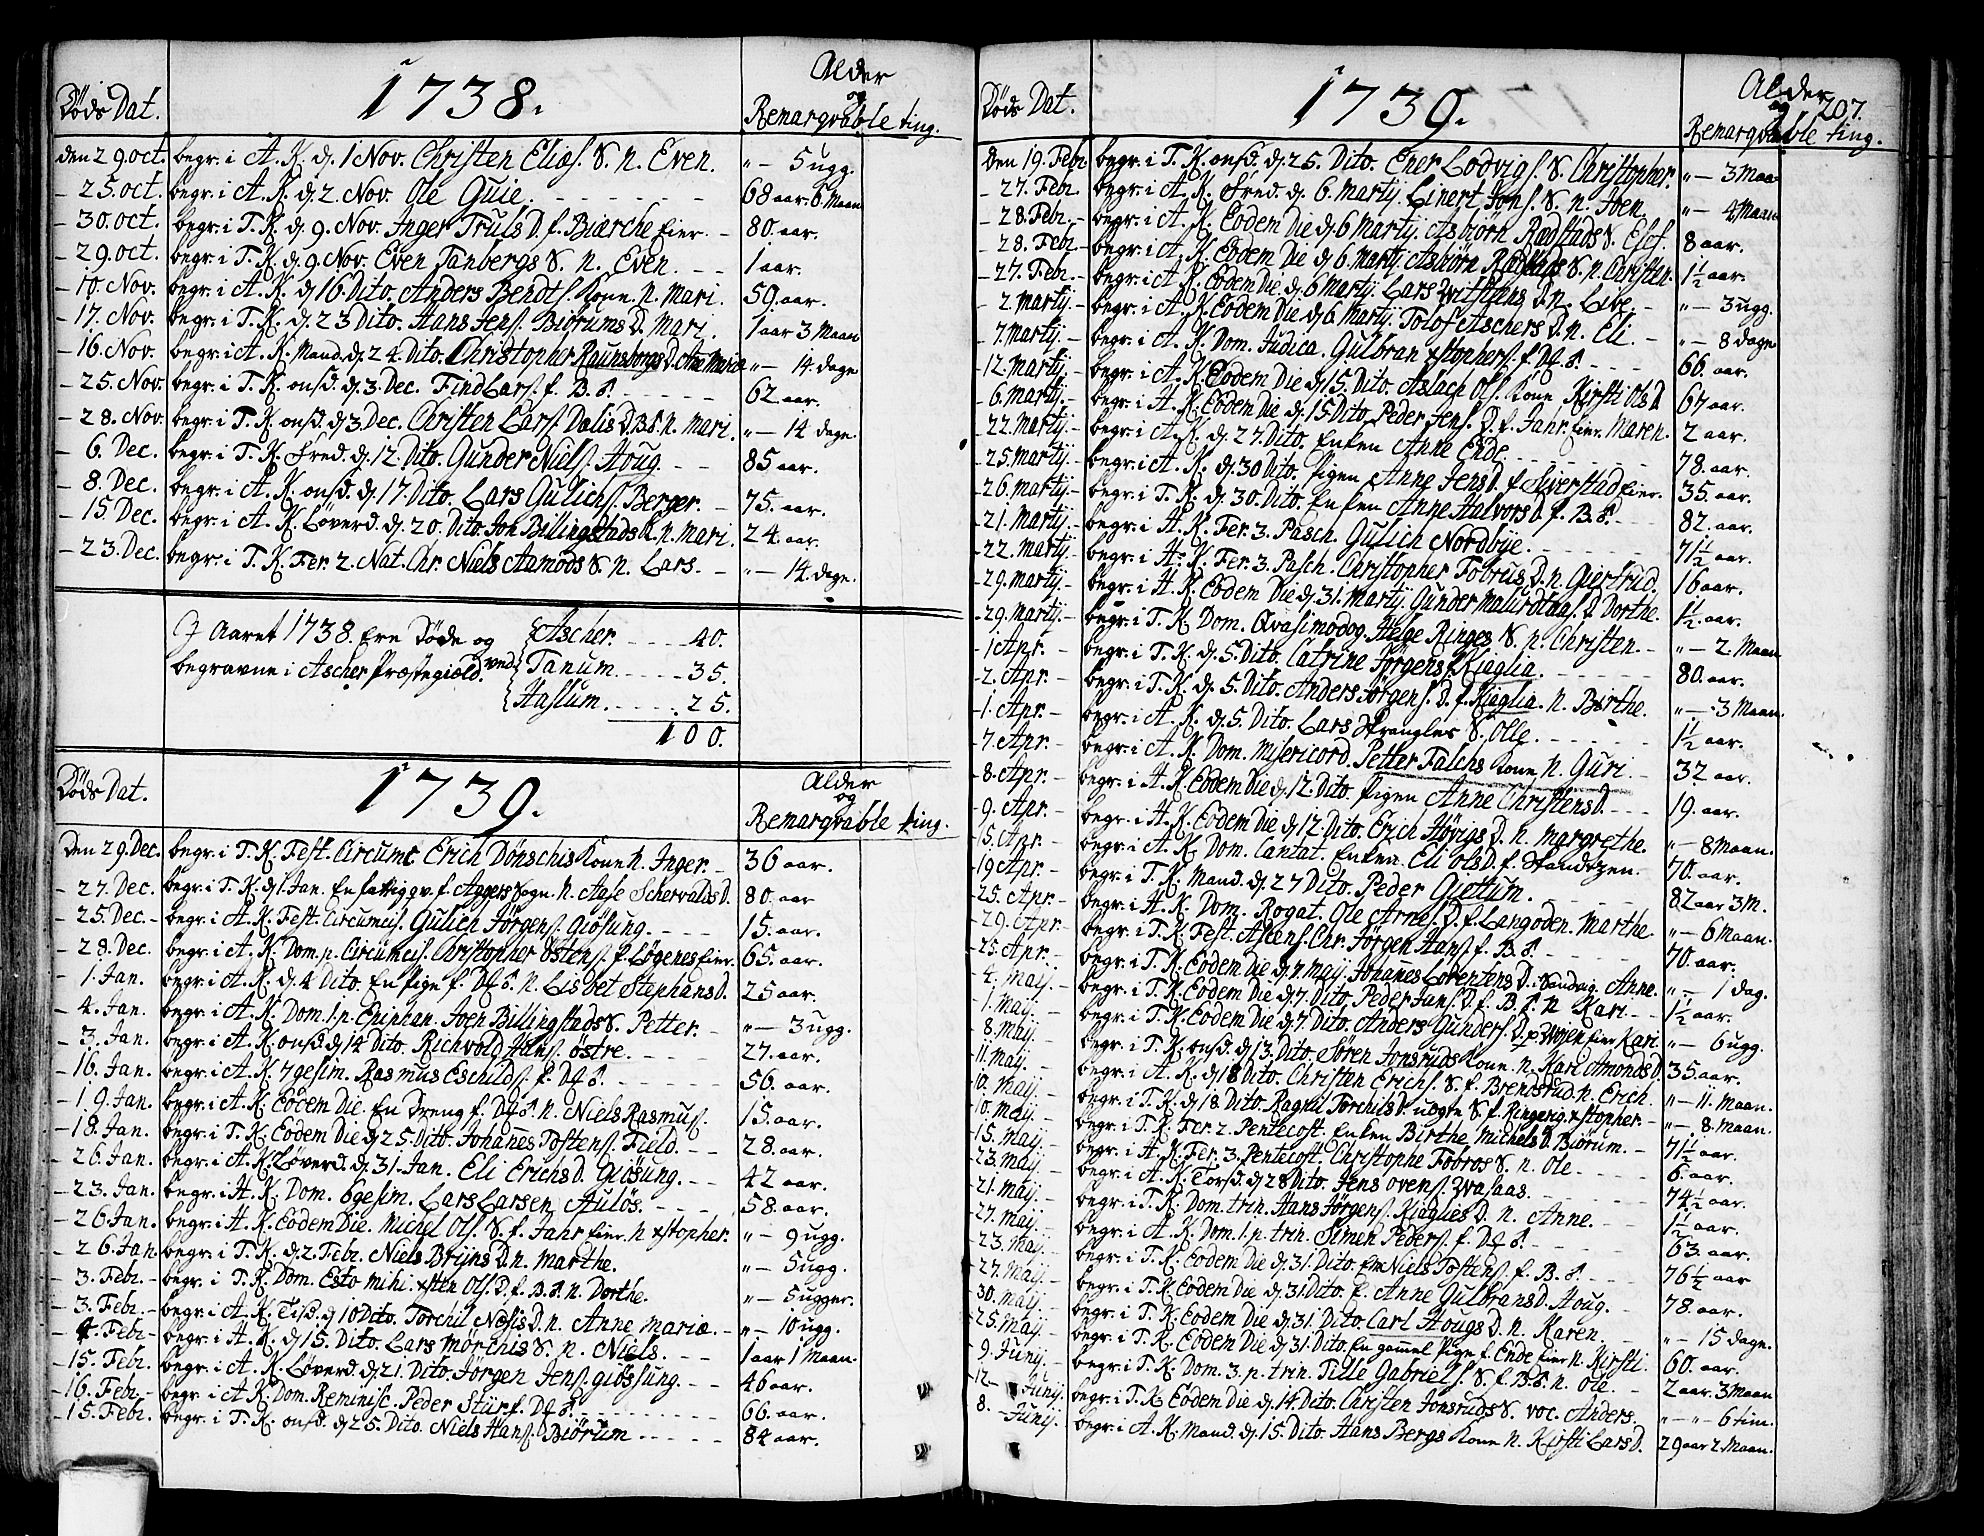 1738.
Døds Dat.
Alder
og
Remarqvable ting.
den 29. oct. begr. i A. K. d. 1 Nov. Christen Elias. S. n. Even. " — 5 ugg.
- 25. oct. begr. i A. K. d. 2. Nov. Ole Guie. 68 aar. 6 Maan
- 30. oct. begr. i T. K. d. 9. Nov. Inger Truls D. f. Biærche Eier. 80. aar.
- 29. oct. begr. i T. K. d. 9 Nov. Even Tanbergs S. n. Even. 1 aar.
- 10. Nov. begr. i A. K. d. 16 Dito. Anders Bendts. Kone. n. Mari. 59. aar.
- 17. Nov. begr. i T. K. d. 23 Dito. Hans Jens. Biørums D. Mari. 1 aar 3 Maan
- 16. Nov. begr. i A. K. Mand. d. 24. Dito. Christopher Raunsborgs D. Ane Maria " — 14 dage
- 25. Nov. begr. i T. K. onsd. d. 3. Dec. Find Lars. f. B. S. 62 aar.
- 28. Nov. begr. i T. K. onsd. d. 3 Dec. Christen Lars. Dalis D. BS. n. Mari. " — 14 dage.
- 6. Dec. begr. i T. K. Fred. d. 12. Dito. Gunder Niels. Houg. 85 aar.
- 8. Dec. begr. i A. K. onsd. d. 17. Dito. Lars Gulichs. Berger. 75. aar.
- 15. Dec. begr. i A. K. Løverd. d. 20. Dito. Jon Billingstads K. n. Mari. 24. aar.
- 23. Dec. begr. i T. K. Fer. 2. Nat. Chr. Niels Aamods S. n. Lars. " — 14. dage.
I Aaret 1738. Ere Døde og
begravne i Ascher Præstegield. ved
Ascher 40.
Tanum. 35.
Haslum. 25.
100.
1739.
Døds Dat.
Alder
og
Remarqvable ting.
Den 29. Dec. begr. i T. K. Fest. Circumc Erich Dønschis Kone n. Inger. 36 aar.
- 27. Dec. begr. i T. K. d. 1 Jan. En fattig qv. f. Aggers Sogn. n. Aase Schervalds D. 80. aar
- 25. Dec. begr. i A. K. Fest. Circumcis. Gulich Jørgens. Giøsung. 15. aar.
- 28. Dec. begr. i A. K. Dom. p. Circumcis. Christopher Ostens. f. Løgenes Eier. 65. aar.
- 1. Jan. begr. i A. K. d. 4 Dito. En Pige f. Df S. n. Lisbet Stephans D. 25 aar.
- 4. Jan. begr. i A. K. Dom. 1. p. Epiphan. Joen Billingstads S. Petter. " — 3 ugg.
- 3. Jan. begr. i A. K. onsd. d. 14 Dito. Richvold Hans. Østre. 27. aar.
- 16. Jan. begr. i A. K. 7gesim. Rasmus Eschilds. f. Df S. 56. aar.
- 19. Jan. begr. i A. K. Eodem Die. En Dreng f. Df S. n. Niels Rasmus. 15. aar.
- 18. Jan. begr. i T. K. Eodem Die d. 25. Dito. Johanes Tostens. Field. 28. aar.
- 26. Jan. begr. i A. K. Løverd. d. 31. Jan. Eli Erichs D. Giøsung. 42 aar.
- 23. Jan. begr. i H. K. Dom. 6gesim. Lars Larsen Aulös. 58. aar.
- 26 Jan. begr. i H. K. Eodem Die. Michel Ols. S. f. Jahr Eier. n xstopher. " — 9 ugg.
- 26. Jan begr. i T. K. d. 2. Febr. Niels Brijns D. n. Marthe. " — 5 ugg.
- 3. Febr. begr. i T. K. Dom. Esto mihi. xsten Ols. D. f. B. S. n. Dorthe. " — 5 ugger.
- 3. Febr. begr. i A. K. Tisd. d. 10 Dito. Torchil Næsis D. n. Anne Mariæ. " — 10 ugg.
- 4. Febr. begr. i H. K. d. 15. Dito. Lars Mørchis S. n. Niels. 1 aar 1 Maan.
- 15. Febr. begr. i A. K. Løverd. d. 21. Dito. Jørgen Jens. Giössung. 46 aar.
- 16. Febr. begr. i A K. Dom. Reminisc. Peder Stür f. Df S. 66. aar.
- 15. Febr. begr. i T. K. onsd. d. 25. Dito. Niels Hans. Biørum 84 aar.
1739.
Døds Dat.
Alder
og
207.
Remarqvable ting.
Den 19. Febr begr. i T. K. onsd. d. 25. Dito. Ener Lodvigs. S. Christopher. " — 3 Maa
- 27. Febr. begr. i A. K. Fred. d. 6. Martij. Einert Jons. S. n. Joen. " — 4 Maan
- 28. Febr. begr. i A. K. Eodem Die d. 6 Martij. Asbiørn Rødstads S. Esef. 8 aar.
- 28. Febr. begr. i A. K. Eodem Die d. 6 Martij. Asbiørn Rødstads S. n. Christen. 1½ aar.
- 27. Febr. begr. i A. K. Eodem Die. d. 6 Martij. Lars D. n. Live. " — 3 ugg.
- 2. Martij. begr. i A. K. Eodem Die d. 6 Martij. Tolof Aschers D. n. Eli. " — 8 dage
- 7. Martij. begr. i A. K. Dom. Judica. Gulbran xstophers. f. Df S. 66. aar.
- 12. Martij. begr. i A. K. Eodem Die d. 15. Dito. Aslach Ols. Kone Kirsti Ols D. 67 aar.
- 6. Martij. begr. i H. K. Eodem Die d. 15 Dito. Peder Jens. D. f. Jahr. Eier. Maren. 2 aar.
- 22. Martij. begr. i A. K. d. 27. Dito. Enken Anne Ende. 78. aar.
- 25. Martij. begr. i A. K. d. 30 Dito. Pigen Anne Jens D. f. Siverstad Eier. 35. aar.
- 26. Martij. begr. i T. K. d. 30. Dito. Enken Anne Halvors D. f. B. S. 82. aar.
- 21. Martij. begr. i H. K. Fer. 3. Pasch. Gulich Nordbÿe. 71½ aar.
- 22. Martij. begr. i H. K. Fer. 3. Pasch. Christopher Tobrus D. n. Giertrud. 16 aar.
- 29. Martij. begr. i H. K. Eodem Die d. 31. Martij. Gunder D. Dorthe. 1½. aar.
- 29. Martij. begr. i T. K. Dom. Qvasimodog. Helge Ringes S. n. Christen. " — 2. Maan
- 1 Apr. begr. i T. K. d. 5. Dito. Catrine Jørgens. Kieglia. 80. aar.
- 2. Apr. begr. i T. K. d. 5. Dito. Anders Jørgens. D. f. Kieglia. n. Birthe. " — 3 Maan.
- 1. Apr. begr. i A. K. d. 5. Dito. Lars S. Olle. 1½ aar.
- 7. Apr. begr. i A. K. Dom. Misericord. Petter Falchs Kone n. Guri. 32 aar.
- 8. Apr. begr. i A. K. Eodem Die d. 12. Dito. Pigen Anne Christens D. 19. aar.
- 9. Apr. begr. i A. K. Eodem Die d. 12. Dito. Erich Høvigs D. n. Margrethe. " — 8 Maan.
- 15. Apr. begr. i A. K. Dom. Cantat. Enken. Eli Ols D. f. 70. aar.
- 19 Apr. begr. i T. K. Mand. d. 27 Dito. Peder Giettum. 82 aar 3 M.
- 25. Apr. begr. i H. K. Dom. Rogat. Ole Arnes. D. f. Langoden. Marthe. " — 6 Maan.
- 29. Apr. begr. i T. K. Fest. Ascens. Chr. Jørgen Hans. f. B. S. 70. aar.
- 25. Apr. begr. i T. K. Eodem Die d. 7. Maij. Johanes Lorentzens D. Sandvig. Anne. " — 1 dag.
- 4. Maij. begr. i T. K. Eodem Die d. 7. Dito. Peder Jans. D. f. B. S. n. Kari. 1½ aar.
- 1. Maij. begr. i T. K. Eodem Die d. 7. Dito. Anders Gunders. D. Eier Kari. " — 6 ugg.
- 8. Maij begr. i T. K. onsd. d. 13. Dito. Søren Jonsruds Kone. n. Kari Amonds D. 35. aar.
- 11. Maij. begr. i A. K. d. 18 Dito. Christen Erichs. S. f. Brendsrud. n. Erich. " — 11. Maan.
- 10. Maij. begr. i T. K. d. 18 Dito. Ragni Torchils D. uægte S. f. Ringerig. xstopher. " — 8. Maan.
- 10. Maij begr. i T. K. Fer. 2. Pentecost. Enken Birthe Michels D. Biørum. 71½ aar.
- 15. Maij. begr. i H. K. Fer. 3. Pentecost. Christophe Tobros S. n. Ole 6. aar.
- 23. Maij begr. i A. K. Torsd. d. 28 Dito. Jens Ovens. 74½ aar.
- 21. Maij. begr. i T. K. Dom. trin. Hans Jørgens. Kieglies D. n. Anne. 1½ aar.
- 27. Maij. begr. i A. K. Dom. 1. p. trin. Simen Peders. f. Df S. 63. aar.
- 23. Maij. begr. i T. K. Eodem Die d. 31. Dito. Niels Tostens. f. B. S. 76½ aar
- 27. Maij. begr. i T. K. Eodem Die d. 31. Dito. E. Anne Gulbrans D. Houg. 78. aar.
- 30. Maij. begr. i T. K. Eodem Die d. 31. Dito. Carl Hougs D. n. Karen. " — 15 dage.
- 25. Maij begr. i T. K. Eodem Die d. 31 Dito. En gammel Pige f. Ende Eier n. Kirsti. 60. aar.
- 9. Junij. begr. i T. K. Dom. 3. p. trin. Tille Gabriels. S. f. B. S. n. Ole. 2 aar. 3 Maan
- 12. Junij begr. i T. K. Eodem Die d. 14. Dito. Christen Jonsruds S. voc. Anders. " — " — 6 tim.
8. Junij. begr. i A. K. Mand. d. 15. Dito. Hans Bergs Kone n. Kirsti Lars D. 29 aar 2. Maan.